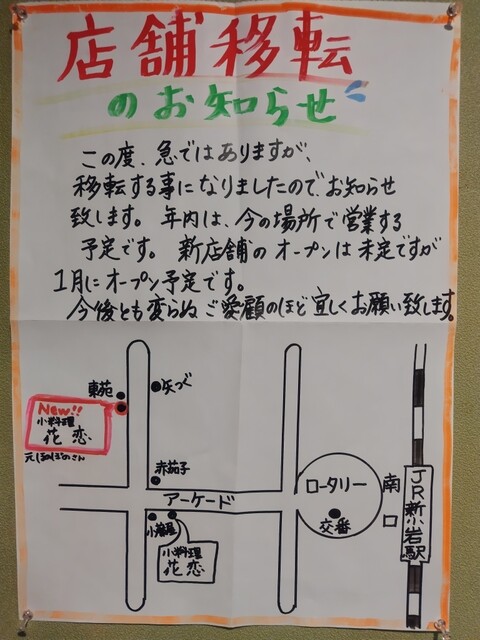 店舗移転
のお知らせ
この度、急ではありますが、
移転する事になりましたのでお知らせ
致します。 年内は、今の場所で営業する
予定です。 新店舗のオープンは未定ですが
1月にオープン予定です。
今後とも変らぬご愛顧のほど宜しくお願い致します。
東苑
矢つぐ
New!!
小料理
花恋
元ぽぽさん
赤茄子
アーケード
小料理
花恋
ロータリー
交番
南口
JR新小岩駅